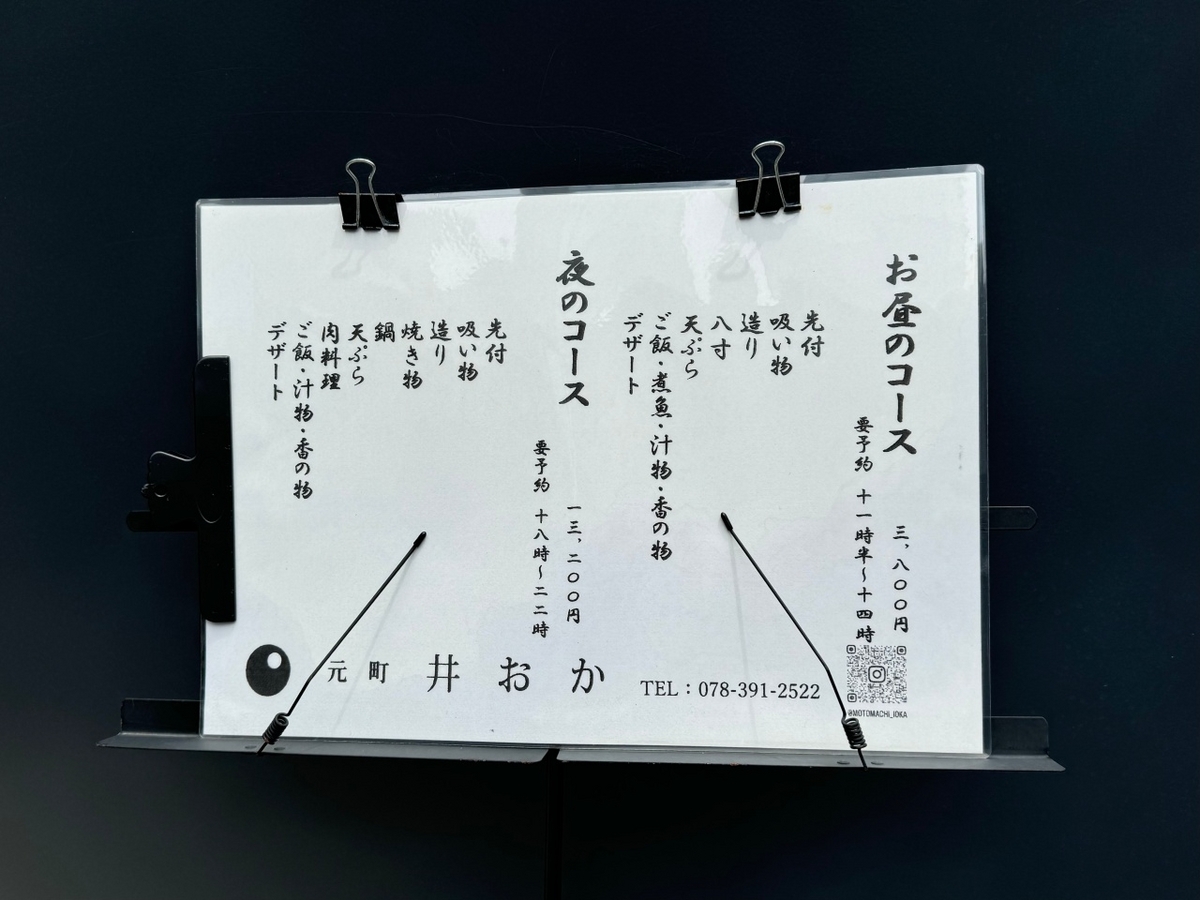 お昼のコース
三、八〇〇円
要予約 十一時半~十四時
先付
吸い物
造り
八寸
天ぷら
ご飯・煮魚・汁物・香の物
デザート
夜のコース
一三、二〇〇円
要予約 十八時~二二時
先付
吸い物
造り
焼き物
鍋
天ぷら
肉料理
ご飯・汁物・香の物
デザート
元町 井おか
TEL:078-391-2522
@MOTOMACHI_IOKA